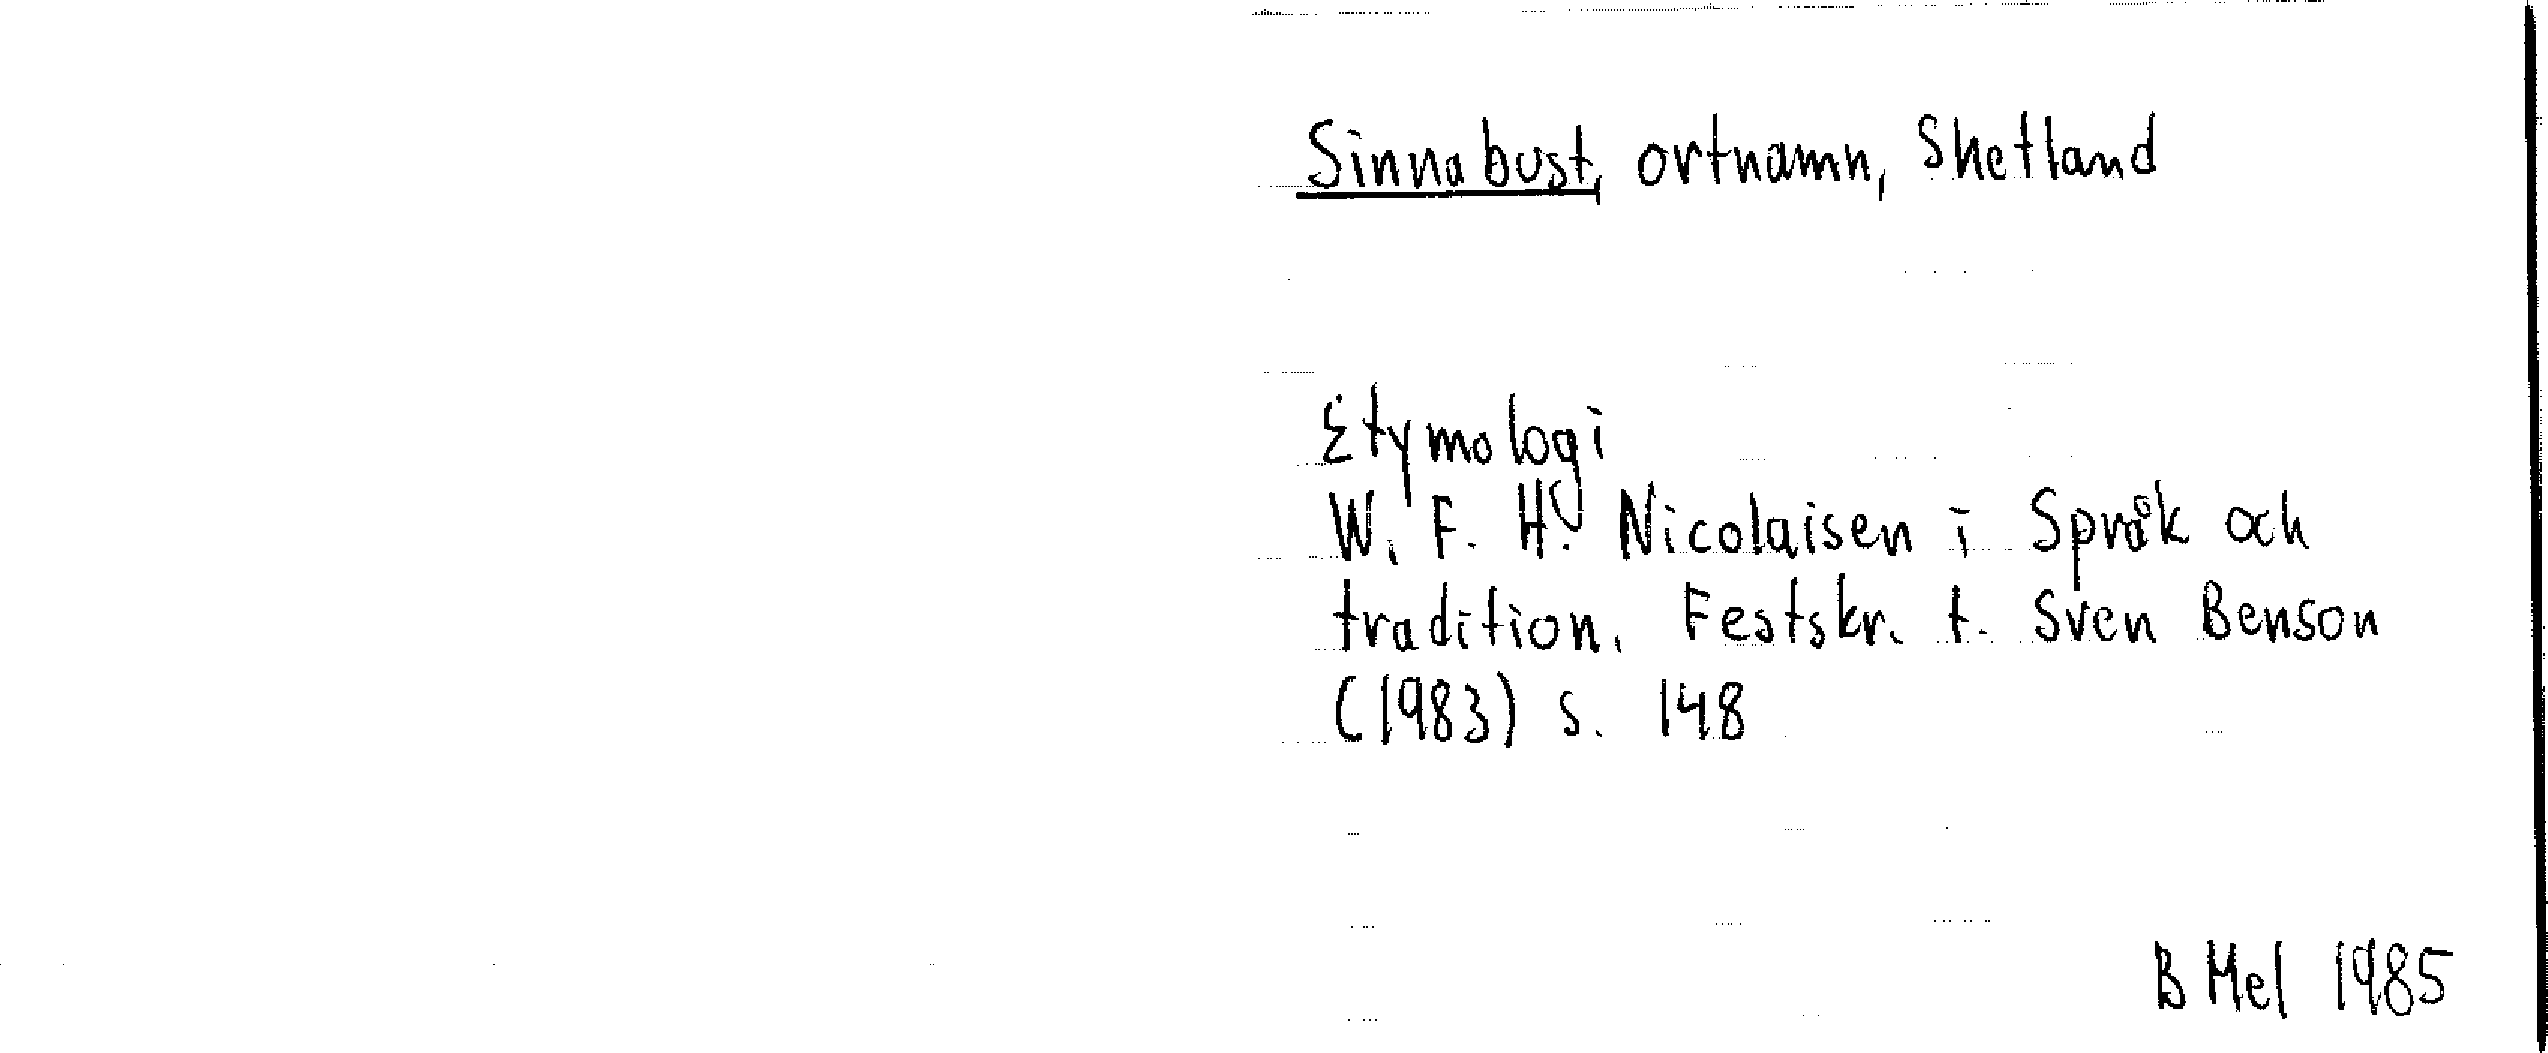 Sinnabust, ortnamn, Shetland
Etymologi
W. F. H. Nicolaisen i Språk och
tradition. Festskr. t. Sven Benson
(1983) s. 148
B Mel 1985